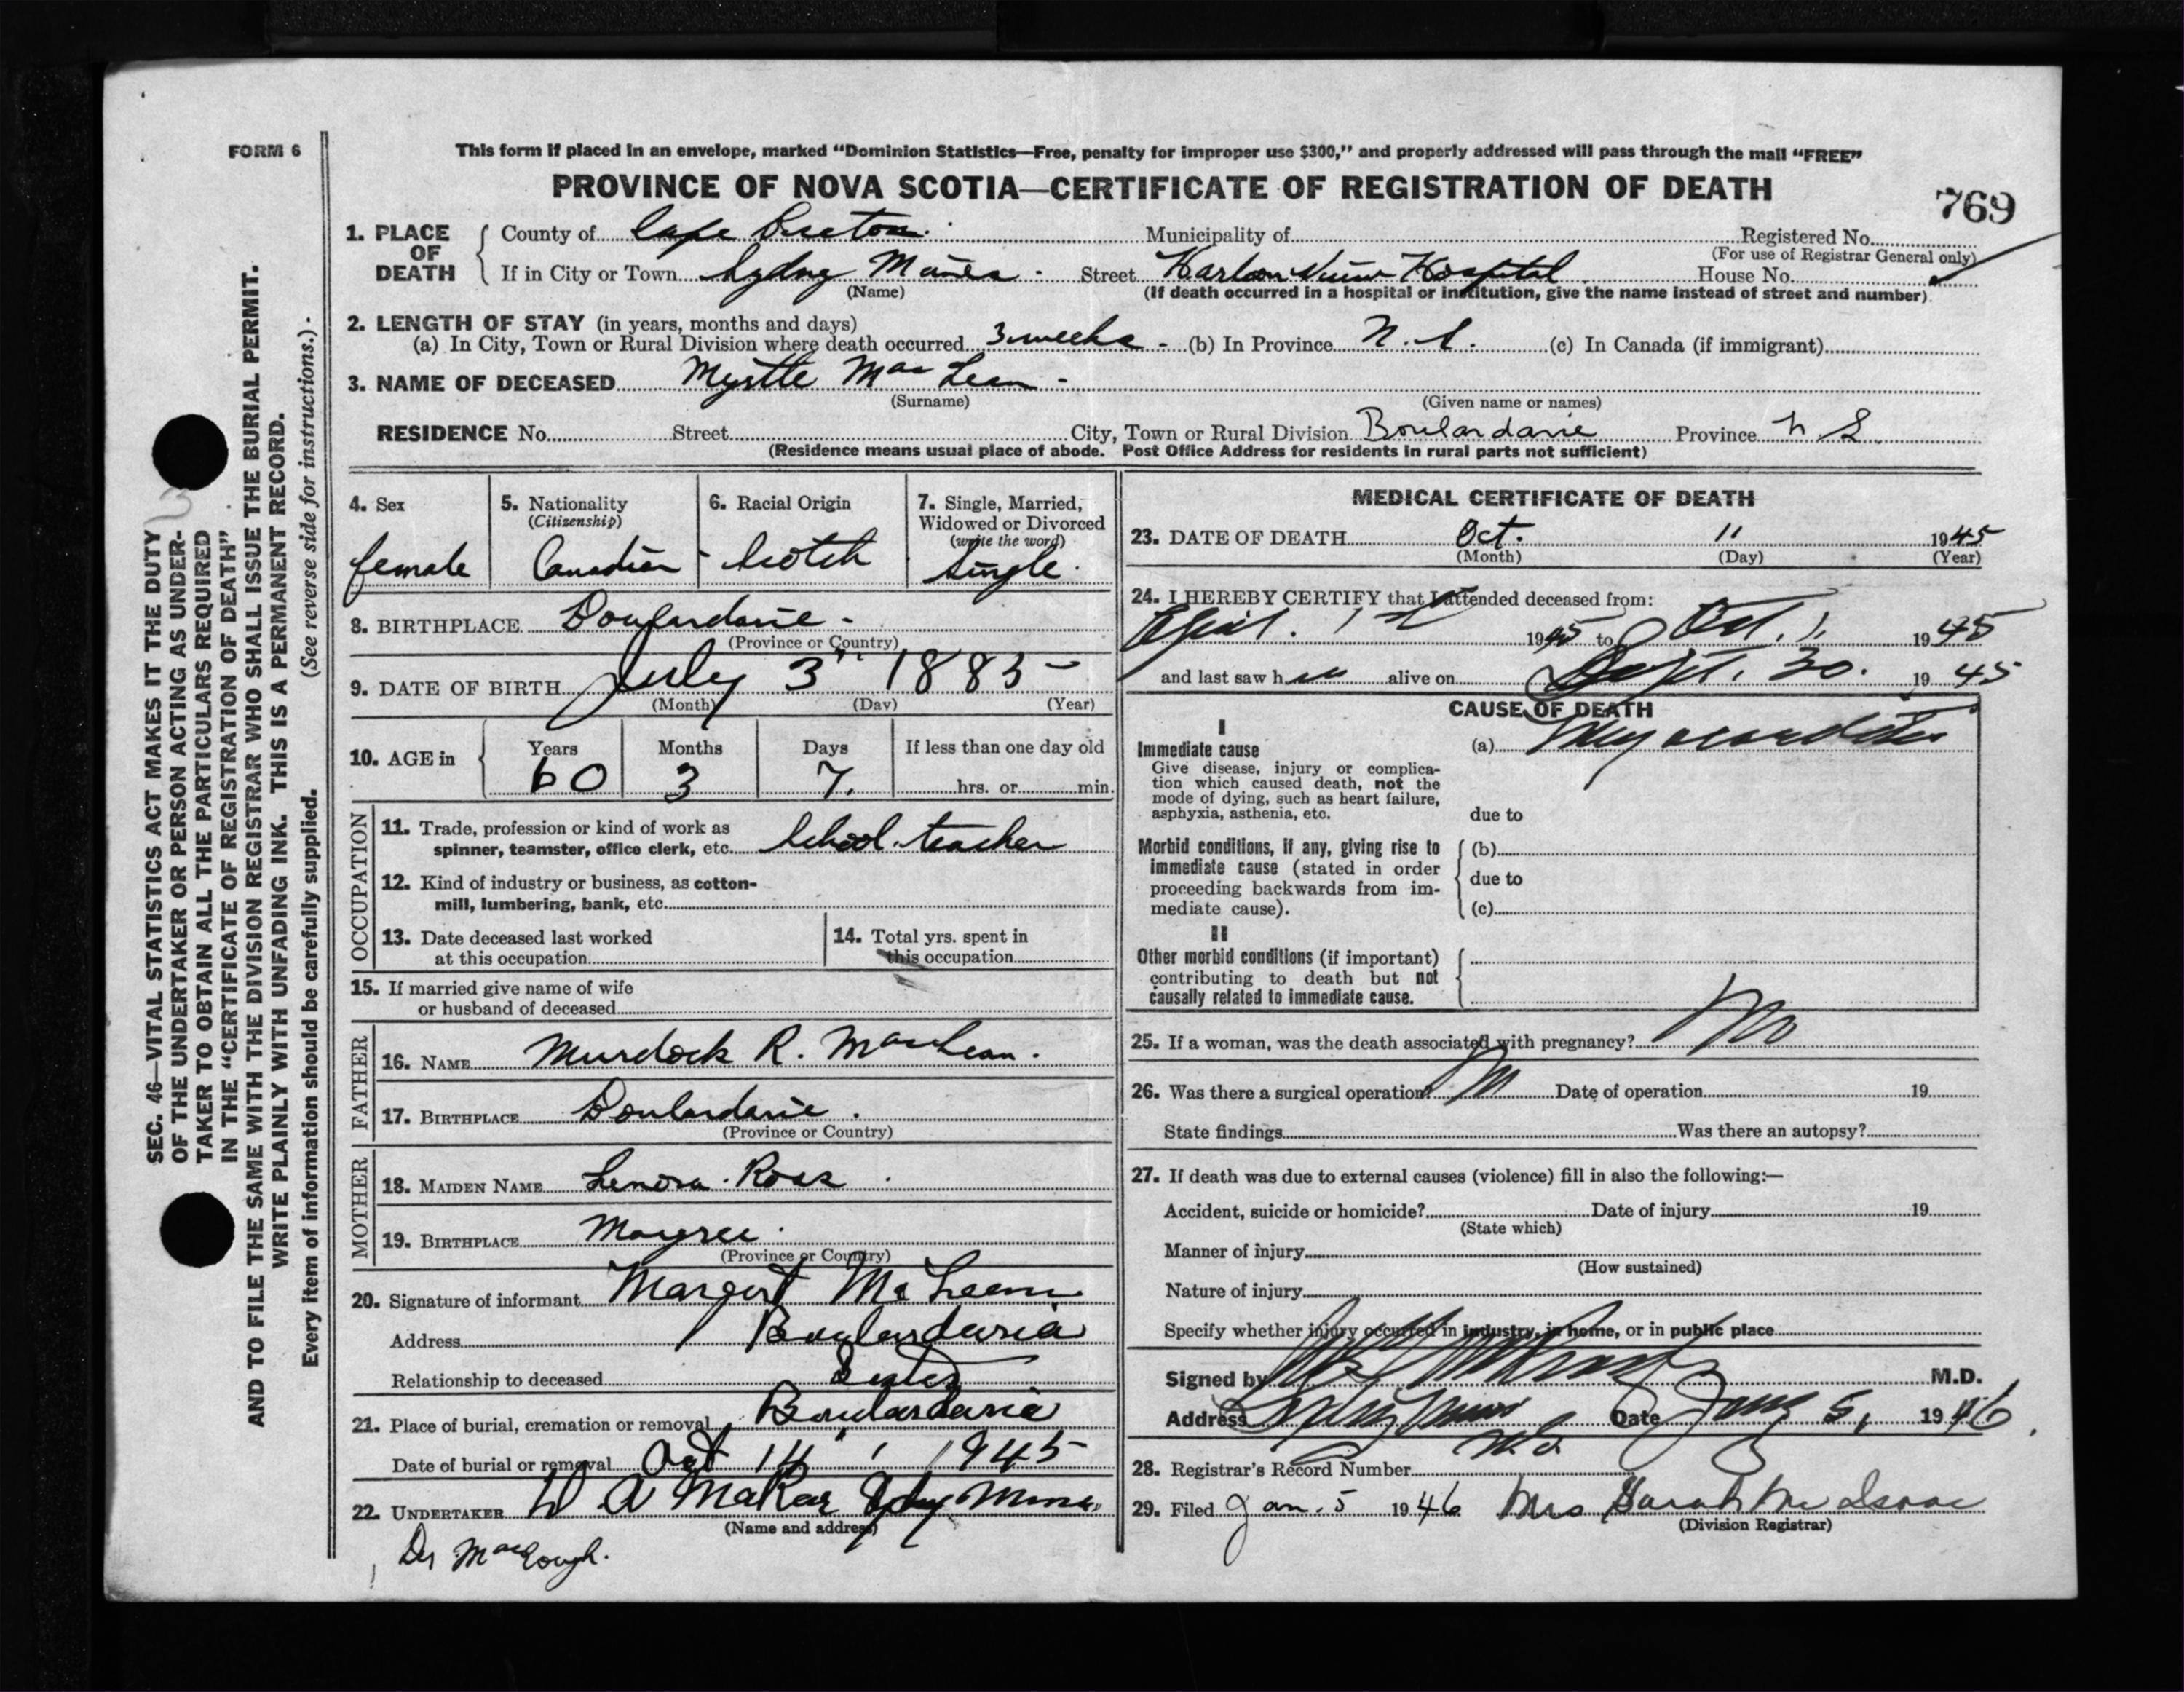 FORM 6
This form if placed in an envelope, marked “Dominion Statistics—Free, penalty for improper use $300,” and properly addressed will pass through the mail “FREE”
PROVINCE OF NOVA SCOTIA—CERTIFICATE OF REGISTRATION OF DEATH
769
1. PLACE OF DEATH
County of Cape Breton. Municipality of Registered No.
(For use of Registrar General only)
If in City or Town Sydney Mines. Street Harbor View Hospital House No.
(Name) (If death occurred in a hospital or institution, give the name instead of street and number)
2. LENGTH OF STAY (in years, months and days)
(a) In City, Town or Rural Division where death occurred 3 weeks - (b) In Province N. S. (c) In Canada (if immigrant)
3. NAME OF DECEASED Myrtle MacLean -
(Surname) (Given name or names)
RESIDENCE No. Street City, Town or Rural Division Boulardarie Province N S
(Residence means usual place of abode. Post Office Address for residents in rural parts not sufficient)
4. Sex
female
5. Nationality
(Citizenship)
Canadian
6. Racial Origin
Scotch
7. Single, Married,
Widowed or Divorced
(write the word)
Single.
8. BIRTHPLACE Boulardarie -
(Province or Country)
9. DATE OF BIRTH July 3 1885
(Month) (Day) (Year)
10. AGE in
Years Months Days If less than one day old
60 3 7. hrs. or min.
OCCUPATION
11. Trade, profession or kind of work as
spinner, teamster, office clerk, etc. School teacher
12. Kind of industry or business, as cotton-
mill, lumbering, bank, etc.
13. Date deceased last worked
at this occupation
14. Total yrs. spent in
this occupation
15. If married give name of wife
or husband of deceased
FATHER
16. NAME Murdock R. MacLean.
17. BIRTHPLACE Boulardarie.
(Province or Country)
MOTHER
18. MAIDEN NAME Lenora Ross
19. BIRTHPLACE
(Province or Country)
20. Signature of informant Margert McLean
Address Boulardaria
Relationship to deceased Sister
21. Place of burial, cremation or removal Boulardaria
Date of burial or removal Oct 14 1945
22. UNDERTAKER W A Sydney Mines
(Name and address)
MEDICAL CERTIFICATE OF DEATH
23. DATE OF DEATH Oct. 11 1945
(Month) (Day) (Year)
24. I HEREBY CERTIFY that I attended deceased from:
April. 1st 1945 to Oct. 1. 1945
and last saw her alive on Sept. 30. 1945
CAUSE OF DEATH
I
Immediate cause
Give disease, injury or complica-
tion which caused death, not the
mode of dying, such as heart failure,
asphyxia, asthenia, etc.
(a) Myocarditis
due to
Morbid conditions, if any, giving rise to
immediate cause (stated in order
proceeding backwards from im-
mediate cause).
(b)
due to
(c)
II
Other morbid conditions (if important)
contributing to death but not
causally related to immediate cause.
25. If a woman, was the death associated with pregnancy? No
26. Was there a surgical operation? No Date of operation 19
State findings Was there an autopsy?
27. If death was due to external causes (violence) fill in also the following:—
Accident, suicide or homicide? Date of injury 19
(State which)
Manner of injury
(How sustained)
Nature of injury
Specify whether injury occurred in industry, in home, or in public place
Signed by M.D.
Address Sydney Mines Date Jany 5, 1946
N.S.
28. Registrar's Record Number
29. Filed Jan. 5 1946 Mrs Sarah McIsaac
(Division Registrar)
SEC. 46—VITAL STATISTICS ACT MAKES IT THE DUTY
OF THE UNDERTAKER OR PERSON ACTING AS UNDER-
TAKER TO OBTAIN ALL THE PARTICULARS REQUIRED
IN THE “CERTIFICATE OF REGISTRATION OF DEATH”
AND TO FILE THE SAME WITH THE DIVISION REGISTRAR WHO SHALL ISSUE THE BURIAL PERMIT.
WRITE PLAINLY WITH UNFADING INK. THIS IS A PERMANENT RECORD.
Every item of information should be carefully supplied. (See reverse side for instructions.)